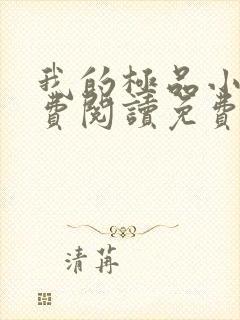 我的極品小
費閱讀免費
清苒